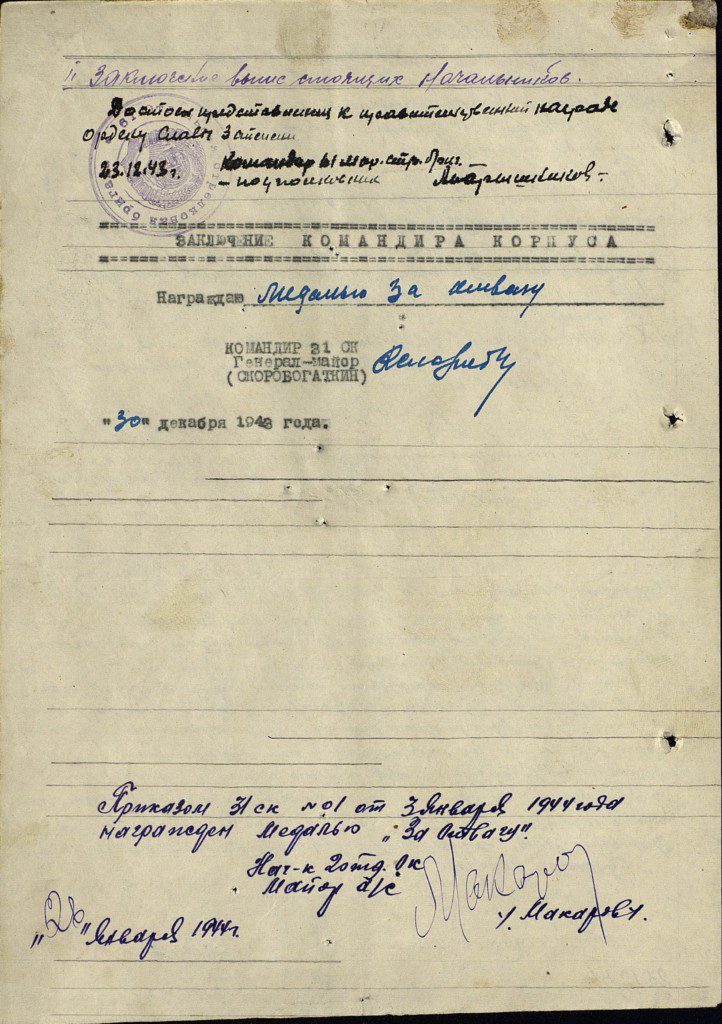 II Заключение вышестоящих Начальников.
Достоен представления к правительственной награде
ордену Славы 3 степени
23.12.43 г. Командир 61 мор. стр. бриг.
- подполковник
стрелковая бригада
ЗАКЛЮЧЕНИЕ КОМАНДИРА КОРПУСА
Награждаю медалью За отвагу
КОМАНДИР 31 СК
Генерал-майор
(СКОРОБОГАТКИН)
"30" декабря 1943 года.
Приказом 31 ск №01 от 3 Января 1944 года
награжден Медалью „За Отвагу".
Нач-к 2 отд. ск
Майор а/с
Макаров
/Макаров/.
„26" Января 1944 г.